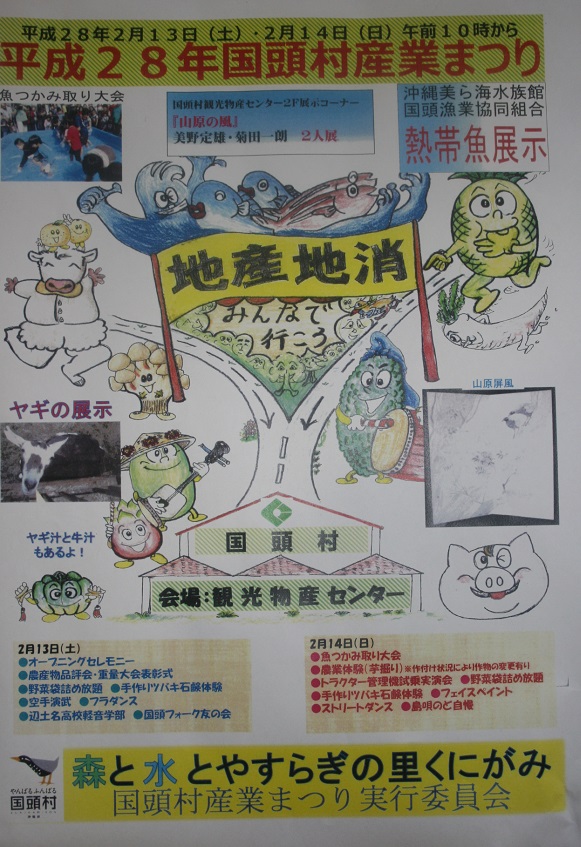 平成２８年２月１３日（土）・２月１４日（日）午前１０時から
平成２８年国頭村産業まつり
魚つかみ取り大会
国頭村観光物産センター２F展示コーナー
『山原の風』
美野定雄・菊田一朗　２人展
沖縄美ら海水族館
国頭漁業協同組合
熱帯魚展示
地産地消
みんなで
行こう
ヤギの展示
山原屏風
ヤギ汁と牛汁
もあるよ！
国頭村
会場：観光物産センター
２月１３日（土）
●オープニングセレモニー
●農産物品評会・重量大会表彰式
●野菜袋詰め放題　●手作りツバキ石鹸体験
●空手演武　●フラダンス
●辺土名高校軽音学部　●国頭フォーク友の会
２月１４日（日）
●魚つかみ取り大会
●農業体験（芋掘り）※作付け状況により作物の変更有り
●トラクター管理機試乗実演会　●野菜袋詰め放題
●手作りツバキ石鹸体験　●フェイスペイント
●ストリートダンス　●島唄のど自慢
森と水とやすらぎの里くにがみ
国頭村産業まつり実行委員会
やんばるふんばる
国頭村